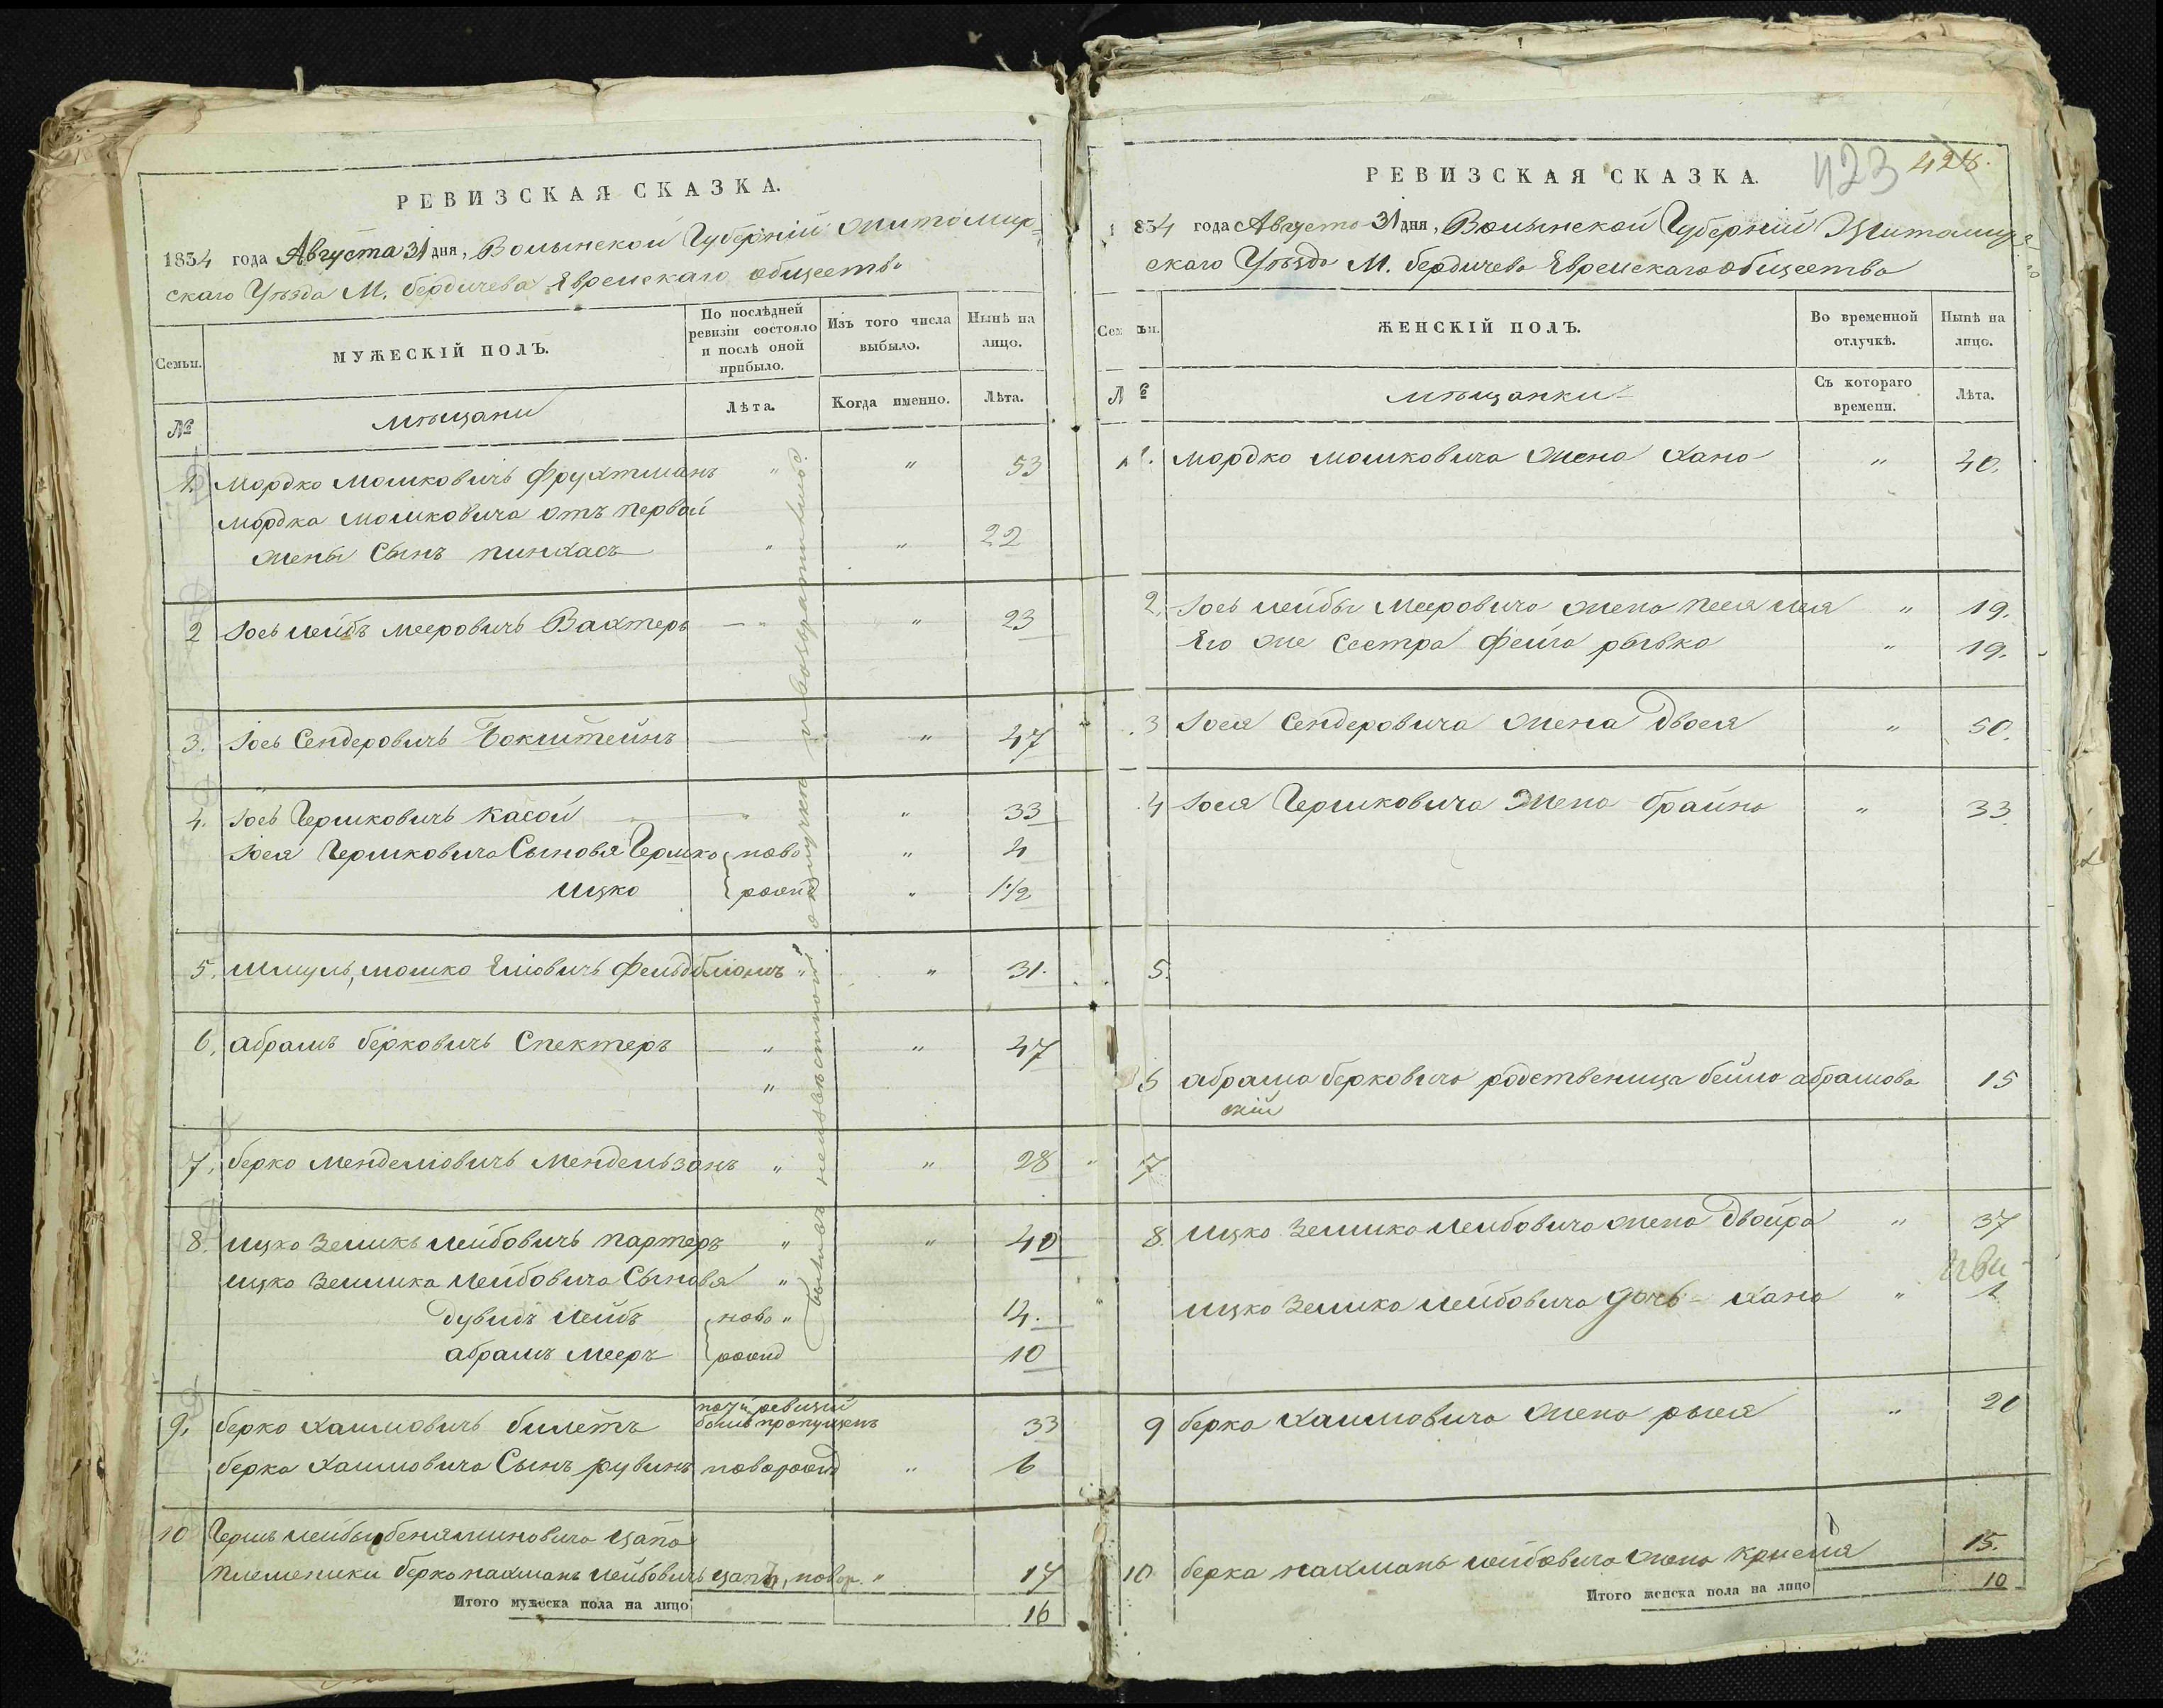 РЕВИЗСКАЯ СКАЗКА.
1834 года Августа 31 дня, Волынской Губерніи Житомир-
скаго Уѣзда М. бердичева Еврейскаго общества
Семьи.
МУЖЕСКІЙ ПОЛЪ.
По послѣдней ревизіи состояло и послѣ оной прибыло.
Изъ того числа выбыло.
Нынѣ на лицо.
№
мѣщани
Лѣта.
Когда именно.
Лѣта.
1. Мордко Мошковичъ Фрухтманъ " " 53
Мордка Мошковича отъ первой
жены Сынъ пинхасъ " " 22
2 Іось лейбъ мееровичъ Вахтеръ — " " 23
3. Іось Сендеровичъ Бокштейнъ " 47
4. Іось Гершковичъ Касой " " 33
Іося Гершковича Сыновя Гершко ново " 4
ицко рожд " 1 1/2
5. шмуль, мошко Еліовичъ фельдблюмъ " " 31.
6. абрамъ берковичъ Спектеръ " " 47
"
7. берко менделіовичъ мендельзонъ " " 28
8. ицко Зеликъ лейбовичъ партеръ " " 40
ицко Зелика лейбовича Сыновя "
дувидъ лейбъ ново " 14.
абрамъ мееръ рожд 10
9. берко хаимовичъ билетъ по 7й ревизіи былъ пропущенъ 33
берка хаимовича Сынъ рувинъноворожд " 6
10 Герша лейбы беняминовича цапа
племеники берко нахманъ лейбовичъ цапъ, новор. " 17
Итого мужеска пола на лицо 16
были въ неизвѣстной отлучкѣ и возвратились.
423 428.
РЕВИЗСКАЯ СКАЗКА.
1834 года Августа 31 дня, Волынской Губерніи Житомир-
скаго Уѣзда М. бердичева Еврейскаго общества
Семьи.
ЖЕНСКІЙ ПОЛЪ.
Во временной отлучкѣ.
Нынѣ на лицо.
№
мѣщанки
Съ котораго времени.
Лѣта.
1. мордко мошковича жена хана " 40.
2. Іось лейбы Мееровича жена песя лея " 19.
Его же сестра фейга рывка " 19.
3 Іося Сендеровича жена двося " 50.
4 Іося Гершковича жена брайна " 33
5.
6 абрама берковича родственица бейла абрамова 15
7
8. ицко Зелика лейбовича жена двойра " 37
ицко Зелика лейбовича дочь хана " 1
9 берка хаимовича жена рыся " 20
10 берка нахмана лейбовича жена крыся 15.
Итого женска пола на лицо 10